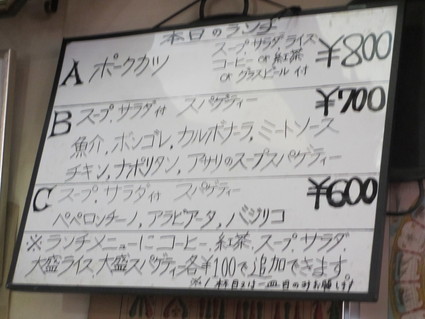 本日のランチ
A ポークカツ スープ、サラダ、ライス ¥800
コーヒー or 紅茶
or グラスビール 付
B スープ、サラダ付 スパゲティー ¥700
魚介、ボンゴレ、カルボナーラ、ミートソース
チキン、ナポリタン、アサリのスープスパゲティー
C スープ、サラダ付 スパゲティー ¥600
ペペロンチーノ、アラビアータ、バジリコ
※ランチメニューにコーヒー、紅茶、スープ、サラダ、
大盛ライス、大盛スパゲティー各¥100で追加できます。